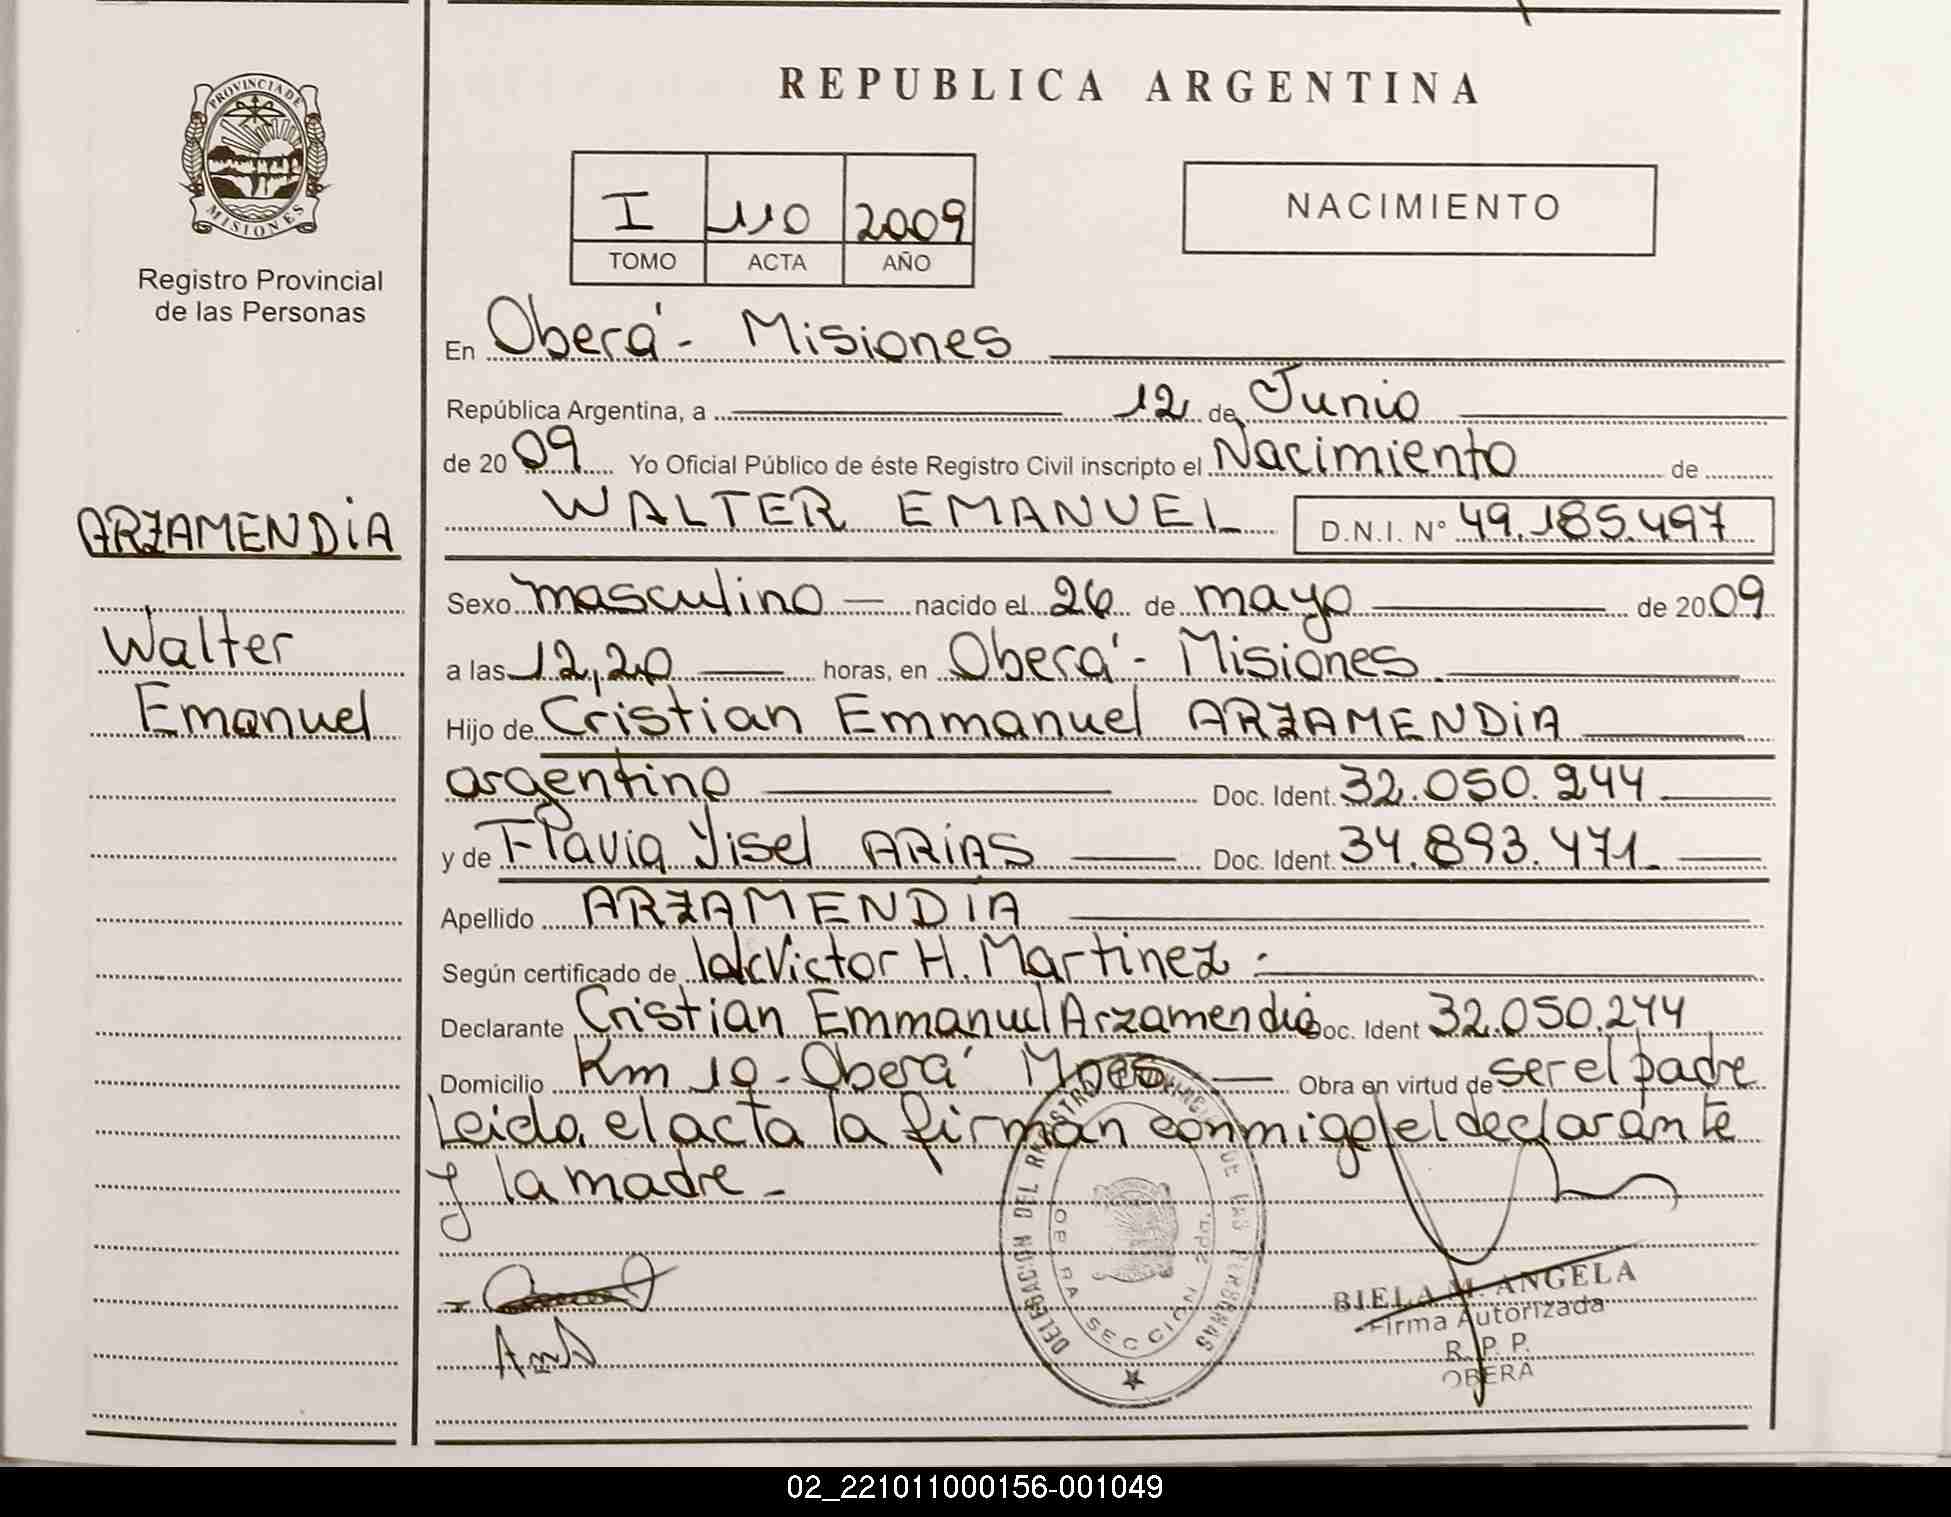 REPUBLICA ARGENTINA
PROVINCIA DE
MISIONES
Registro Provincial
de las Personas
I 110 2009
TOMO ACTA AÑO
NACIMIENTO
En Oberá - Misiones
República Argentina, a 12 de Junio
de 2009 Yo Oficial Público de éste Registro Civil inscripto el Nacimiento de
ARZAMENDIA
WALTER EMANUEL D.N.I. N° 49.185.497
Sexo masculino nacido el 26 de mayo de 2009
Walter
Emanuel
a las 12,20 horas, en Oberá - Misiones
Hijo de Cristian Emmanuel ARZAMENDIA
argentino Doc. Ident. 32.050.244
y de Flavia Yisel ARIAS Doc. Ident. 34.893.471
Apellido ARZAMENDIA
Según certificado de Victor H. Martinez
Declarante Cristian Emmanuel Arzamendia Doc. Ident 32.050.244
Domicilio Km 10 - Oberá Mnes Obra en virtud de ser el padre
Leida el acta la firman conmigo el declarante
y la madre -
DELEGACION DEL REGISTRO DE LAS PERSONAS
OBERA SECCION 2DA.
BIELA M. ANGELA
Firma Autorizada
R. P. P.
OBERA
02_221011000156-001049